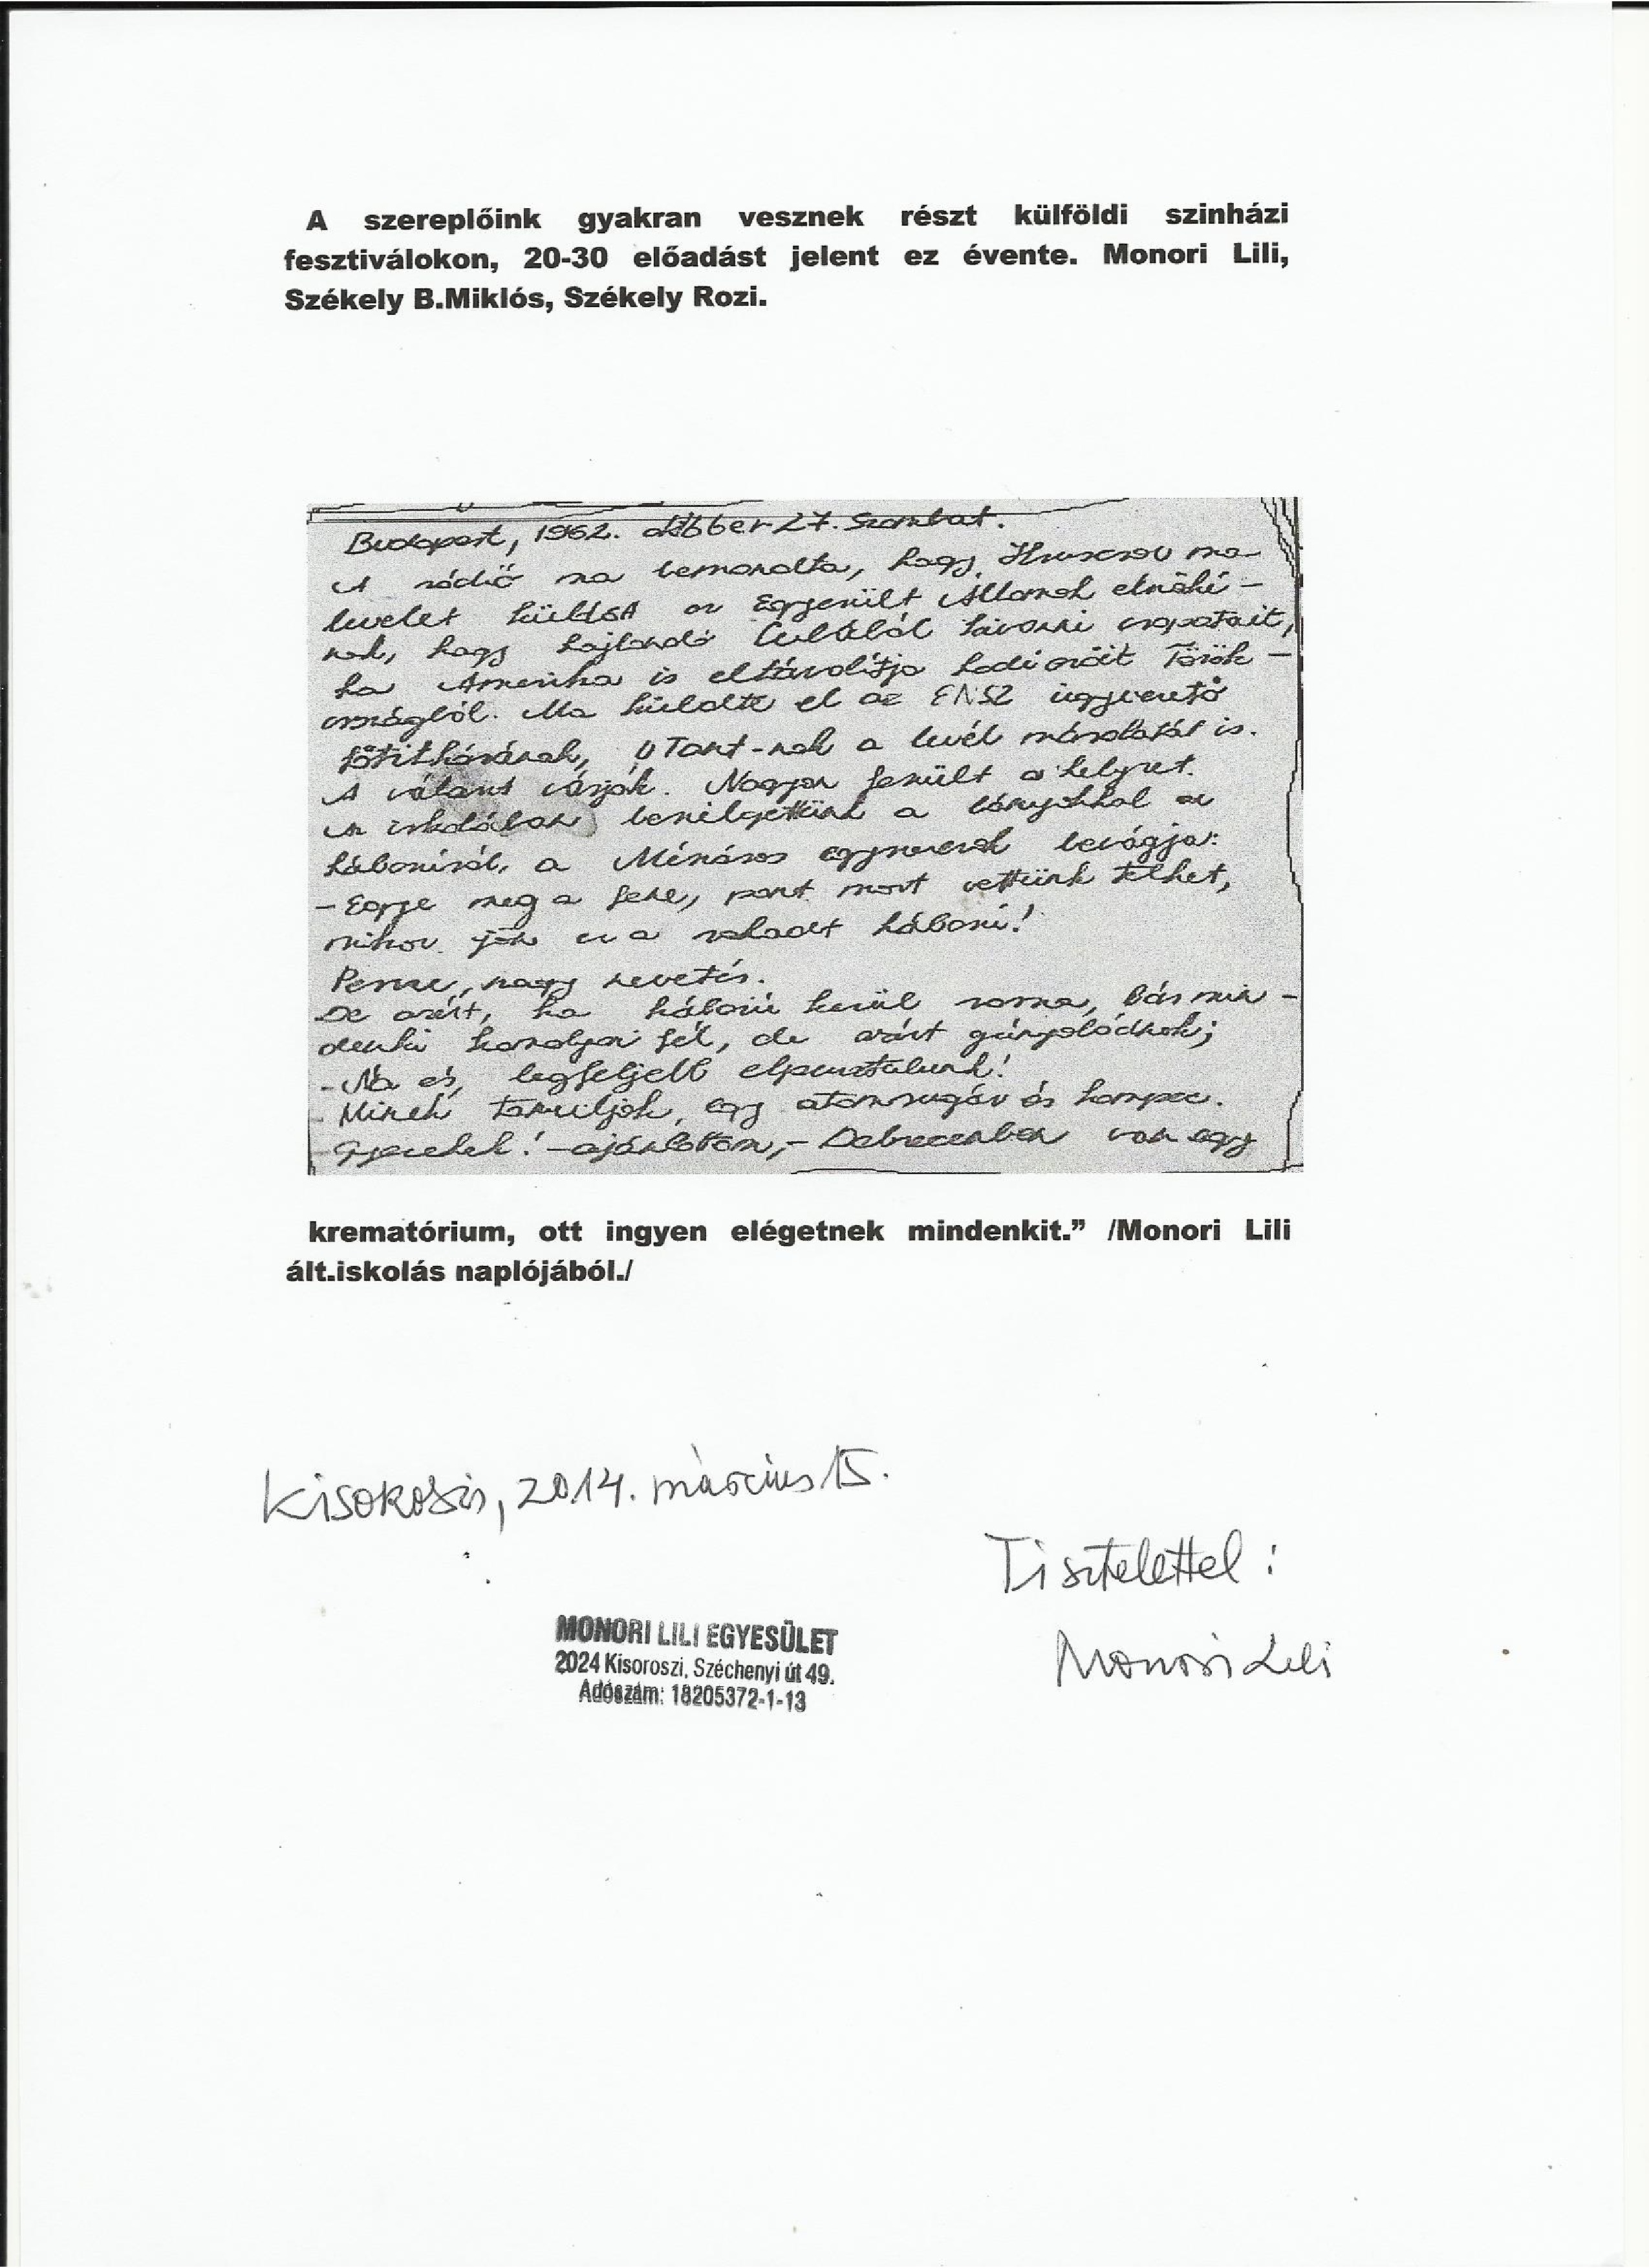 A szereplőink gyakran vesznek részt külföldi szinházi
fesztiválokon, 20-30 előadást jelent ez évente. Monori Lili,
Székely B.Miklós, Székely Rozi.
Budapest, 1962. október 27. Szombat.
A rádió ma bemondta, hogy Hruscsov ma
levelet küldött az Egyesült Államok elnöké-
nek, hogy hajlandó Cubából kivonni csapatait,
ha Amerika is eltávolítja hadi erőit Török-
országból. Ma küldte el az ENSZ ügyvezető
főtitkárának, U Tant-nak a levél másolatát is.
A választ várják. Nagyon feszült a helyzet.
Az iskolában beszélgettünk a lányokkal a
háborúról, a Mészáros egyszercsak bevágja:
- Egye meg a fene, pont most vettünk telket,
mikor jön ez a rohadt háború!
Persze, nagy nevetés.
De azért, ha háború kerül szóba, bár min-
denki komolyan fél, de azért gúnyolódnak;
- Na és, legfeljebb elpusztulunk!
- Minek tanuljak, egy atomsugár és kampec.
- Gyerekek! - ajánlottam, - Debrecenben van egy
krematórium, ott ingyen elégetnek mindenkit.” /Monori Lili
ált.iskolás naplójából./
Kisoroszi, 2014. március 15.
Tisztelettel:
MONORI LILI EGYESÜLET
2024 Kisoroszi, Széchenyi út 49.
Adószám: 18205372-1-13
Monori Lili